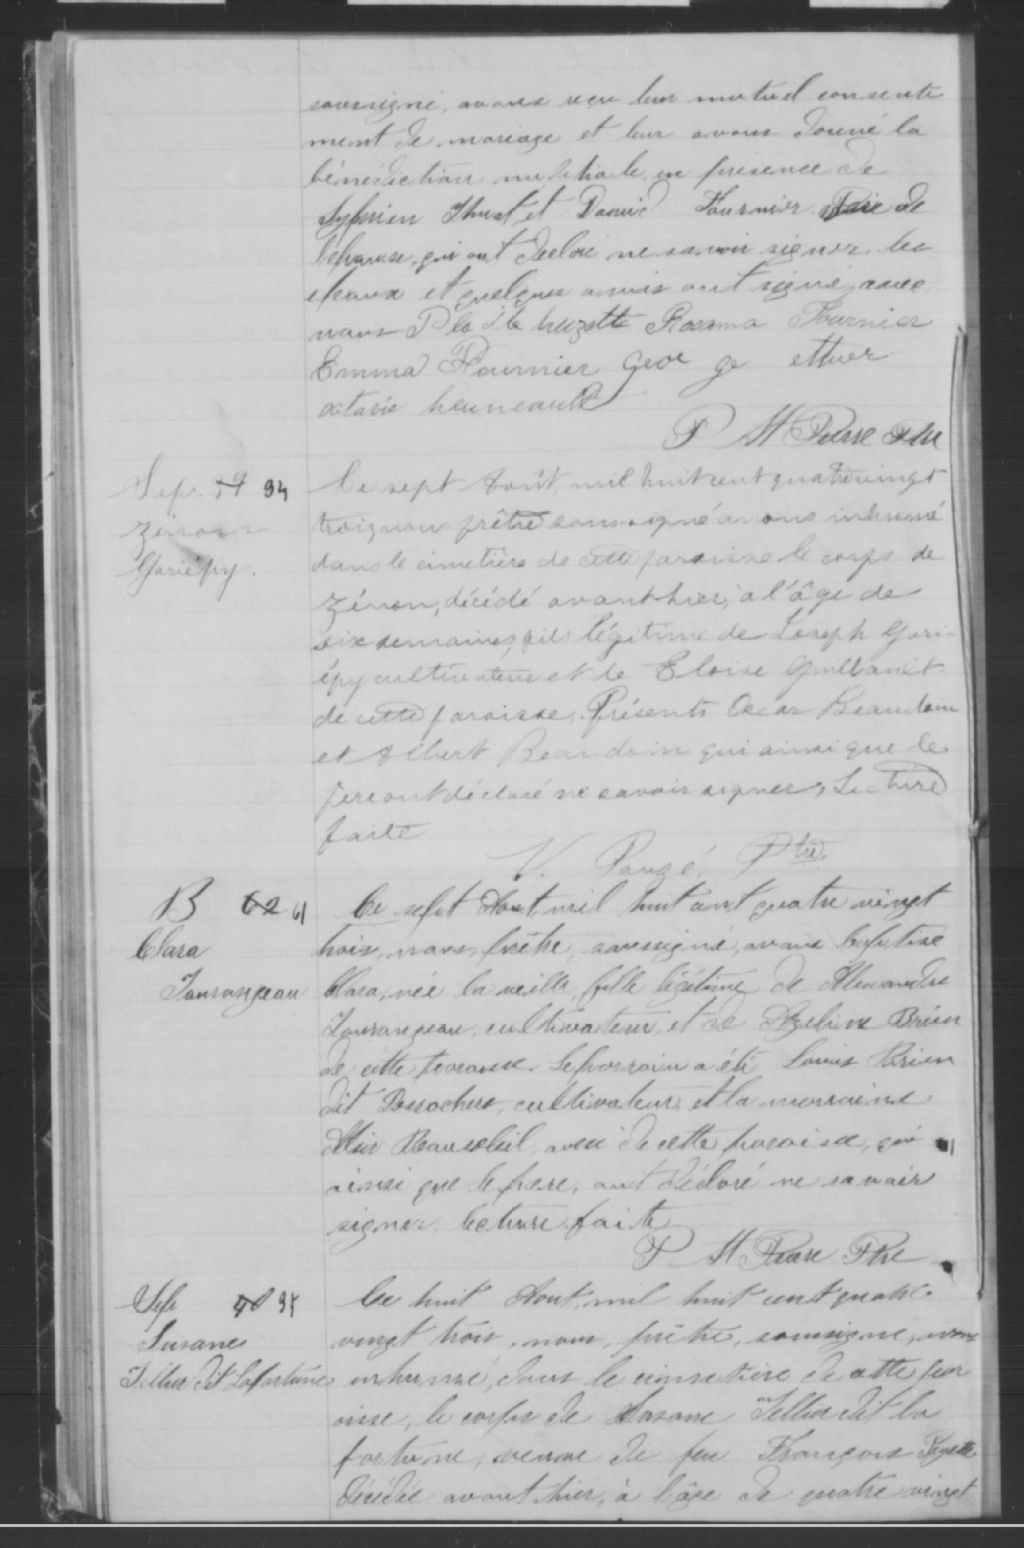 soussigné, avons reçu leur mutuel consente
ment de mariage et leur avons donné la
bénédiction nuptiale en présence de
et David Fournier Père de
l'épouse, qui ont déclaré ne savoir signer. les
époux et quelques amis ont signé avec
nous Rosanna Fournier
Emma Fournier
octavie
P St Pierre Ptre
Sep. 94
Zénon
Gariépy.
Ce sept Août mil huit cent quatre vingt
trois, nous prêtre soussigné avons inhumé
dans le cimetière de cette paroisse le corps de
Zénon, décédé avant hier, à l'âge de
six semaines, fils légitime de Joseph Gari-
épy cultivateur et de Eloise Guilbault
de cette paroisse, Présents Oscar Beaudoin
et Albert Beaudoin qui ainsi que le
père ont déclaré ne savoir signer, Lecture
faite
V. Ptre.
B 62 61
Clara
Ce sept Aout mil huit cent quatre vingt
trois, nous, prêtre, soussigné, avons baptisé
Clara, née la veille, fille légitime de Alexandre
cultivateur, et de Azeline Brien
de cette paroisse. Le parrain a été Louis Brien
dit Desrochers, cultivateur et la marraine
Beausoleil, aussi de cette paroisse, qui
ainsi que le père, ont déclaré ne savoir
signer. lecture faite
P St Pierre Ptre
Sep 95
Susane
Tellier dit Lafortune
Ce huit Aout mil huit cent quatre
vingt trois, nous, prêtre, soussigné, avons
inhumé, dans le cimetière de cette par
oisse, le corps de Susane Tellier dit la
fortune, veuve de feu François
décédée avant hier, à l'âge de quatre vingt